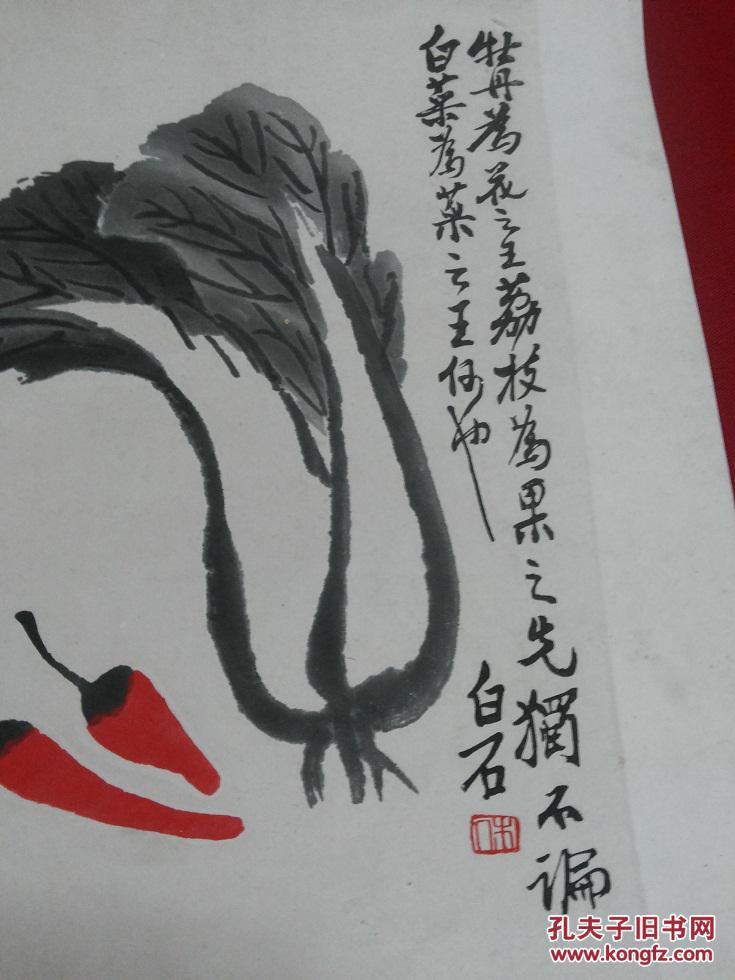 牡丹為花之王荔枝為果之先獨不論
白菜為菜之王何也
白石
木人
孔夫子旧书网
www.kongfz.com